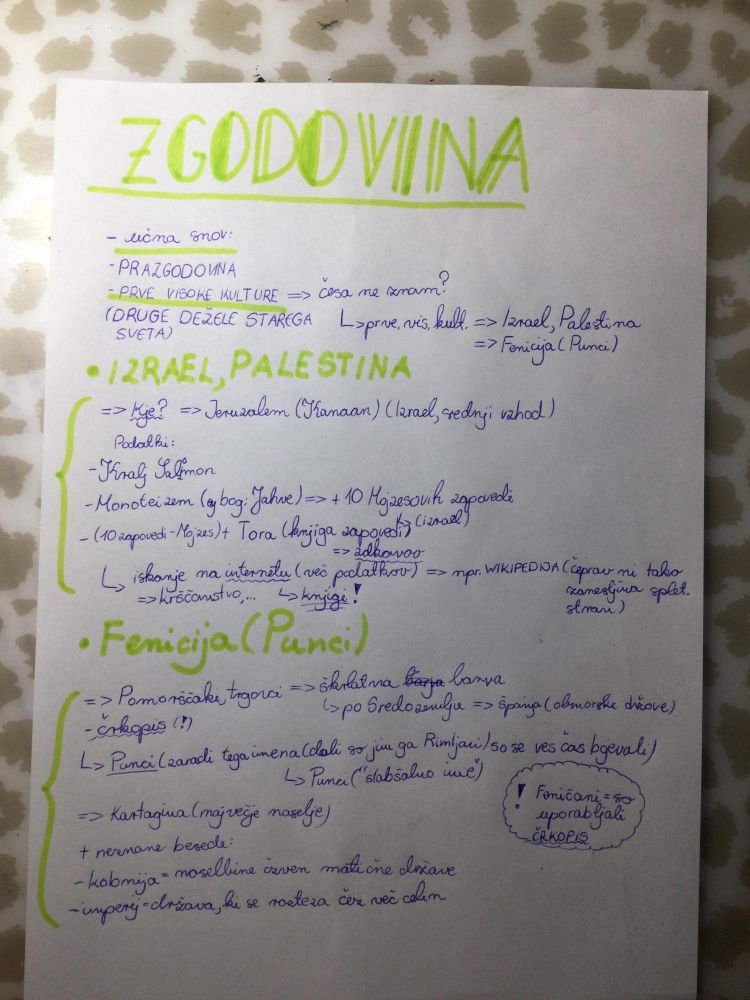 ZGODOVINA
- učna snov:
- PRAZGODOVINA
- PRVE VISOKE KULTURE => česa ne znam?
(DRUGE DEŽELE STAREGA SVETA)
↳ prve, vis, kult. => Izrael, Palestina
=> Fenicija (Punci)
• IZRAEL, PALESTINA
=> Kje? => Jeruzalem (Kanaan) (Izrael, srednji vzhod)
Podatki:
- Kralj Salomon
- Monoteizem (bog: Jahve) => + 10 Mojzesovih zapovedi
- (10 zapovedi - Mojzes) + Tora (knjiga zapovedi) ↳ (izrael)
=>
↳ iskanje na internetu (več podatkov) => npr. WIKIPEDIJA (čeprav ni tako
zanesljiva splet.
stran)
=> krščanstvo,... ↳ knjigi!
• Fenicija (Punci)
=> Pomorščaki, trgovci => škrlatna barva
↳ po Sredozemlju => španija (obmorske države)
- črkopis (!)
↳ Punci (zaradi tega imena (dali so jim ga Rimljani) so se ves čas bojevali)
↳ Punci ("slabšalno ime")
=> Kartagina (največje naselje)
! Feničani = so
uporabljali
ČRKOPIS
+ neznane besede:
- kolonija = naselbine izven matične države
- imperij = država, ki se razteza čez več celin